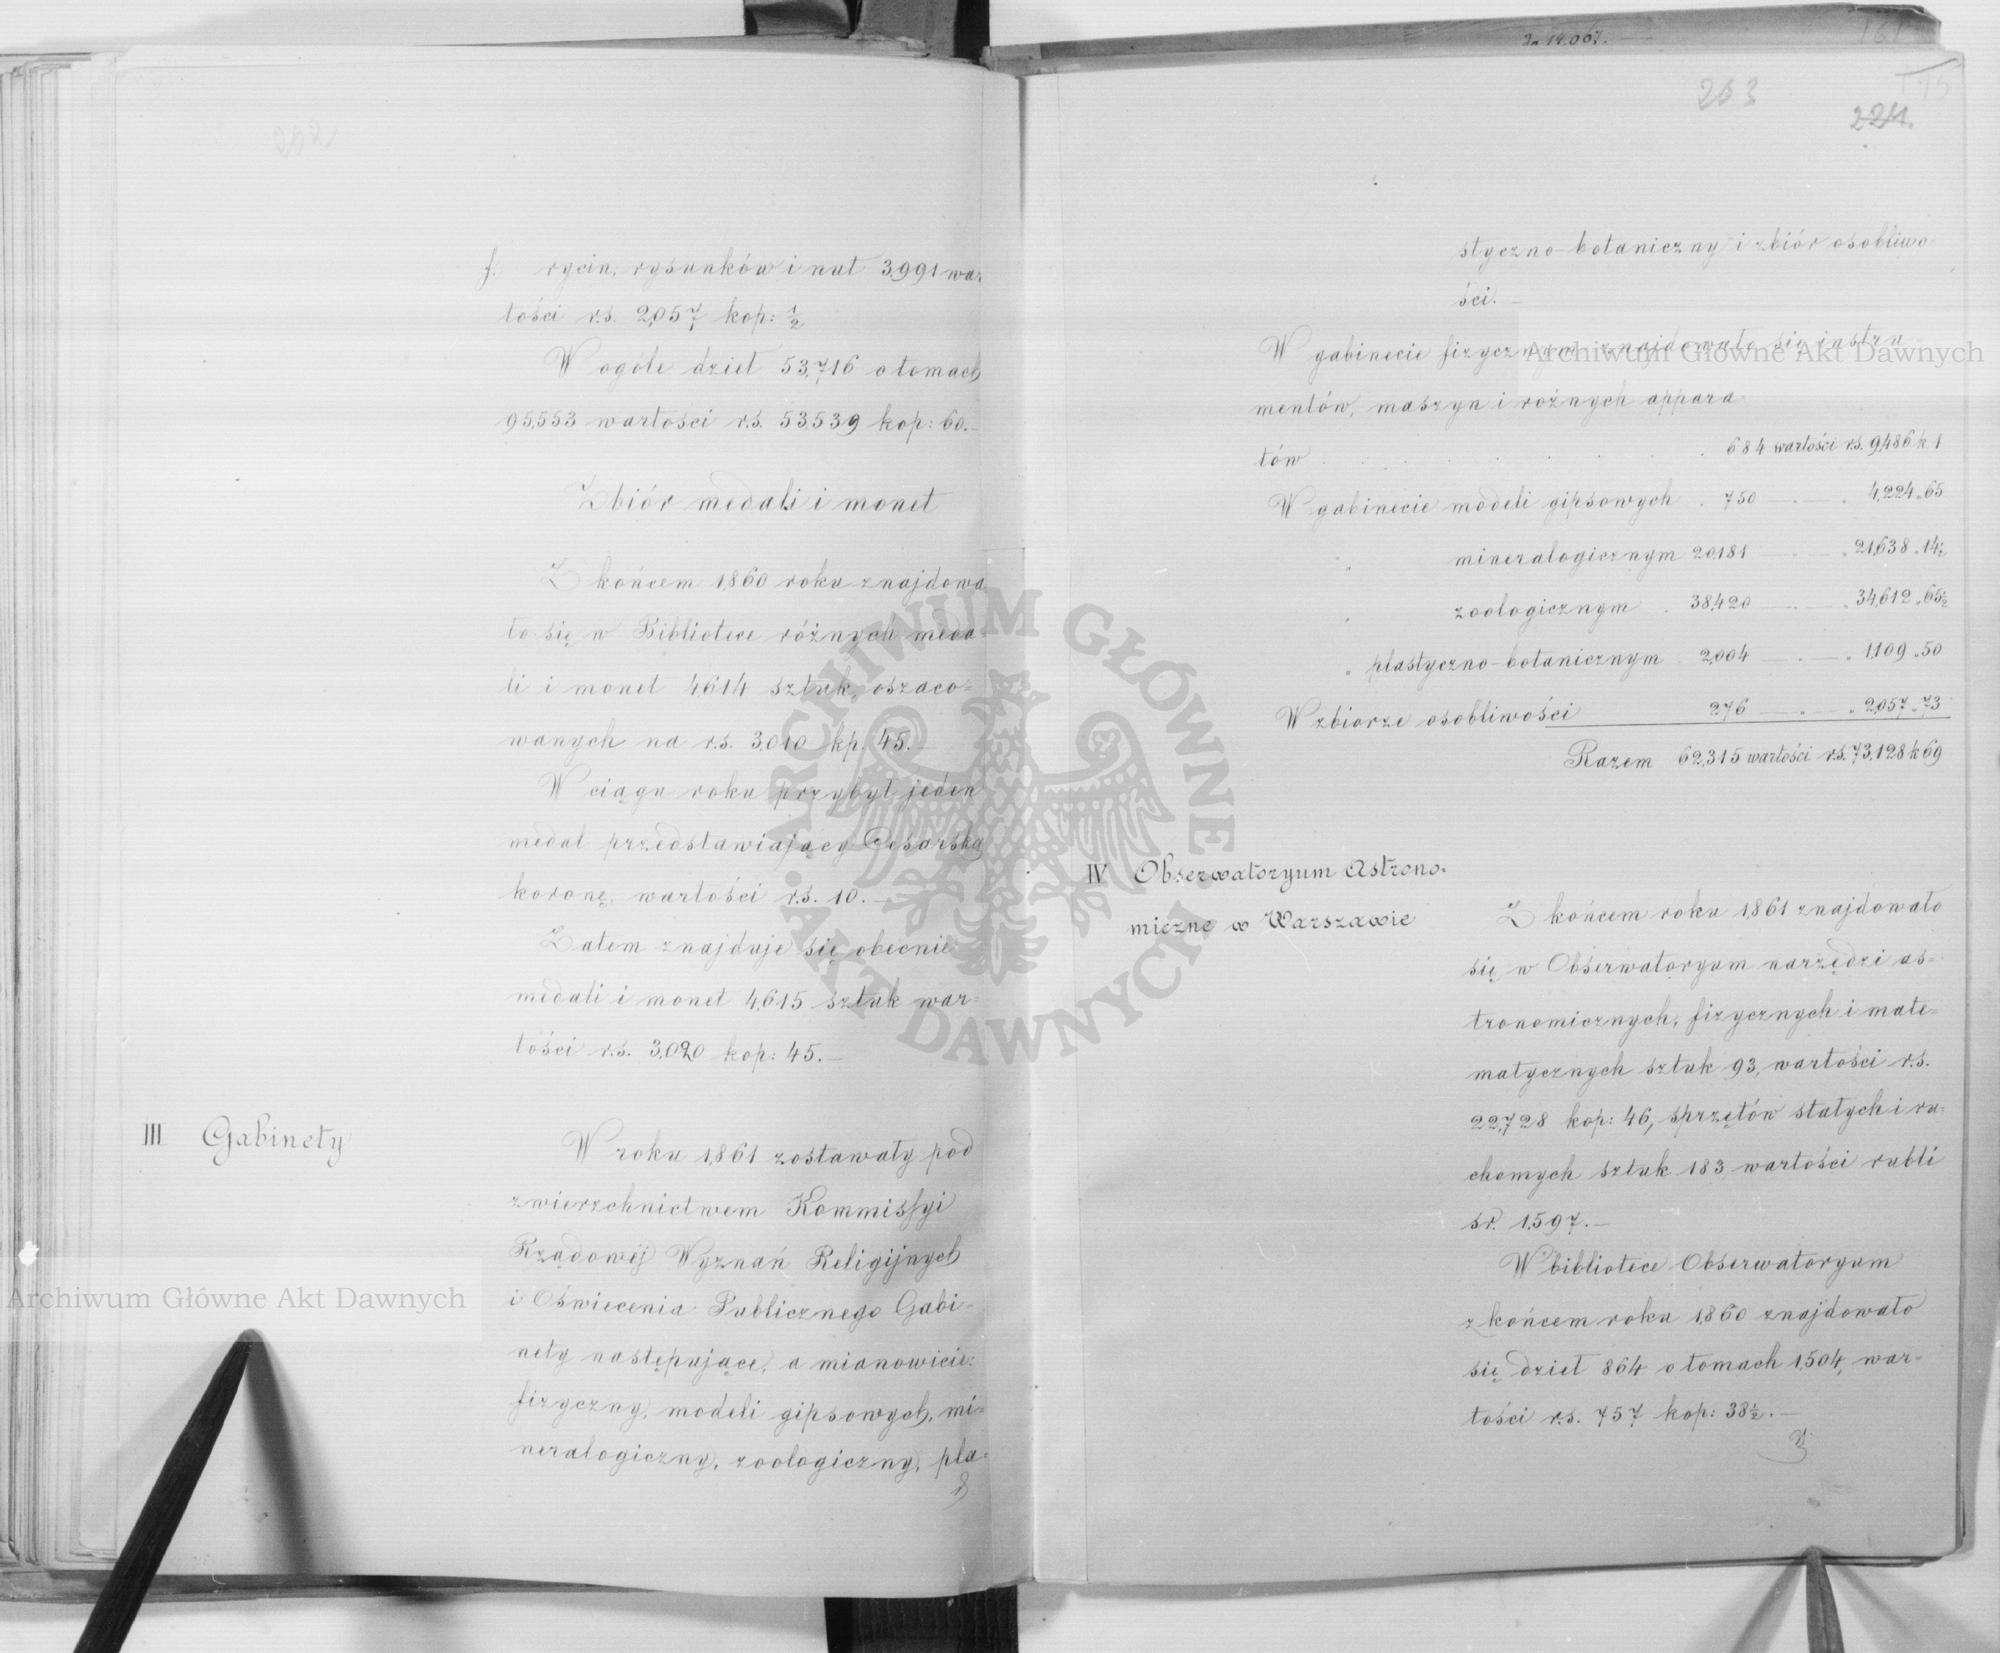 262
f. rycin, rysunków i nut 3,991 war
tości r.s. 2,057 kop: ½
W ogóle dzieł 53,716 o tomach
95,553 wartości r.s. 53,539 kop: 60.—
Zbiór medali i monet
Z końcem 1,860 roku znajdowa
ło się w Bibliotece różnych meda-
li i monet 4,614 sztuk, oszaco=
wanych na r.s. 3,010 kp. 45.—
W ciągu roku przybył jeden
medal przedstawiający Cesarską
koronę, wartości r.s. 10.—
Zatem znajduje się obecnie
medali i monet 4,615 sztuk war=
tości r.s. 3,020 kop: 45.—
III Gabinety
W roku 1,861 zostawały pod
zwierzchnictwem Kommissyi
Rządowéj Wyznań Religijnych
i Oświecenia Publicznego Gabi-
nety następujące, a mianowicie:
fizyczny, modeli gipsowych, mi=
neralogiczny, zoologiczny, pla=
Archiwum Główne Akt Dawnych
14.067.
263
224.
styczno-botaniczny i zbiór osobliwo-
ści.—
W gabinecie fizycznym znajdowało się instru
mentów, maszyn i rożnych appara
tów . . . . . . . 684 wartości r.s. 9,486 k 1
W gabinecie modeli gipsowych . 750 — " — " 4,224 " 65
" mineralogicznym 20,181 — " — " 21,638 " 14½
" zoologicznym . 38,420 — " — " 34,612 " 65½
" plastyczno-botanicznym 2,004 — " — " 1,109 " 50
W zbiorze osobliwości 276 — " — " 2,057 " 73
Razem 62,315 wartości r.s. 73,128 k 69
IV Obserwatoryum Astrono-
miczne w Warszawie
Z końcem roku 1,861 znajdowało
się w Obserwatoryum narzędzi as=
tronomicznych, fizycznych i mate=
matycznych sztuk 93, wartości r.s.
22,728 kop: 46, sprzętów stałych i ru=
chomych sztuk 183 wartości rubli
sr. 1,597.—
W bibliotece Obserwatoryum
z końcem roku 1,860 znajdowało
się dzieł 864 o tomach 1,504, war=
tości r.s. 757 kop: 38½.—
Archiwum Główne Akt Dawnych
ARCHIWUM GŁÓWNE AKT DAWNYCH